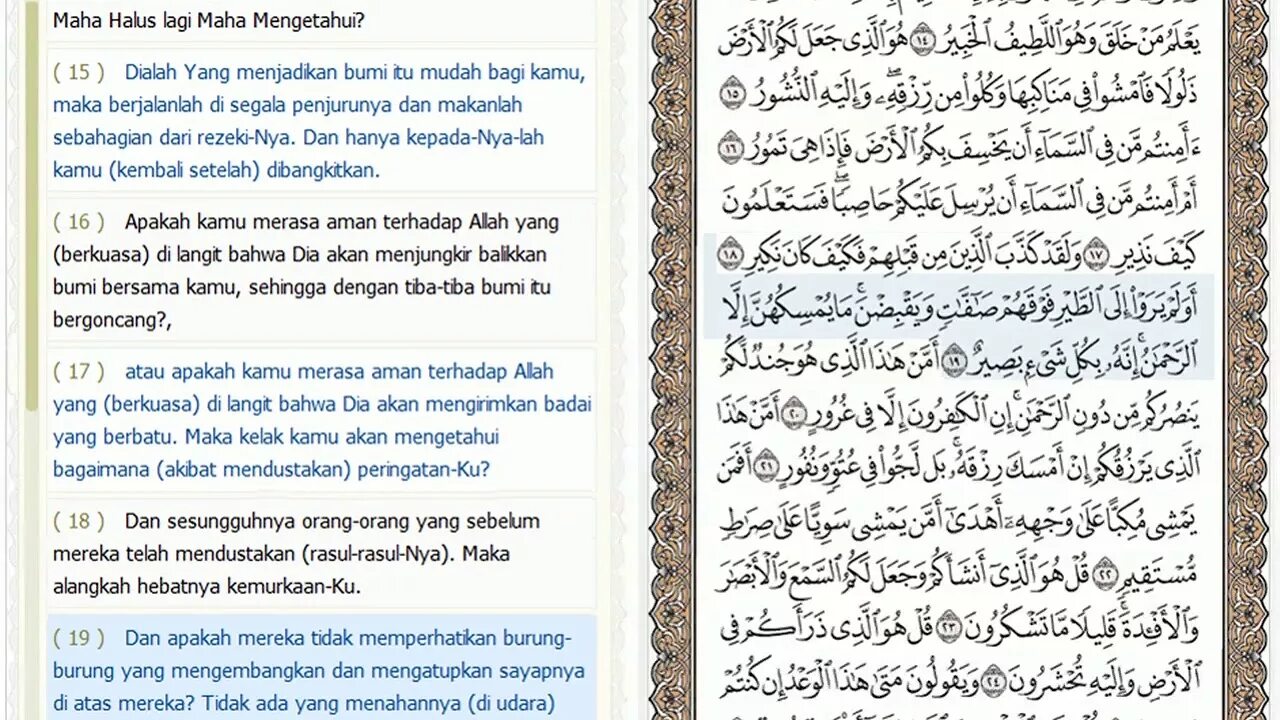 Maha Halus lagi Maha Mengetahui?
( 15 ) Dialah Yang menjadikan bumi itu mudah bagi kamu,
maka berjalanlah di segala penjurunya dan makanlah
sebahagian dari rezeki-Nya. Dan hanya kepada-Nya-lah
kamu (kembali setelah) dibangkitkan.
( 16 ) Apakah kamu merasa aman terhadap Allah yang
(berkuasa) di langit bahwa Dia akan menjungkir balikkan
bumi bersama kamu, sehingga dengan tiba-tiba bumi itu
bergoncang?,
( 17 ) atau apakah kamu merasa aman terhadap Allah
yang (berkuasa) di langit bahwa Dia akan mengirimkan badai
yang berbatu. Maka kelak kamu akan mengetahui
bagaimana (akibat mendustakan) peringatan-Ku?
( 18 ) Dan sesungguhnya orang-orang yang sebelum
mereka telah mendustakan (rasul-rasul-Nya). Maka
alangkah hebatnya kemurkaan-Ku.
( 19 ) Dan apakah mereka tidak memperhatikan burung-
burung yang mengembangkan dan mengatupkan sayapnya
di atas mereka? Tidak ada yang menahannya (di udara)
يَعْلَمُ مَنْ خَلَقَ وَهُوَ ٱللَّطِيفُ ٱلْخَبِيرُ ١٤ هُوَ ٱلَّذِى جَعَلَ لَكُمُ ٱلْأَرْضَ
ذَلُولًا فَٱمْشُوا۟ فِى مَنَاكِبِهَا وَكُلُوا۟ مِن رِّزْقِهِۦ ۖ وَإِلَيْهِ ٱلنُّشُورُ ١٥
ءَأَمِنتُم مَّن فِى ٱلسَّمَآءِ أَن يَخْسِفَ بِكُمُ ٱلْأَرْضَ فَإِذَا هِىَ تَمُورُ ١٦
أَمْ أَمِنتُم مَّن فِى ٱلسَّمَآءِ أَن يُرْسِلَ عَلَيْكُمْ حَاصِبًا ۖ فَسَتَعْلَمُونَ
كَيْفَ نَذِيرِ ١٧ وَلَقَدْ كَذَّبَ ٱلَّذِينَ مِن قَبْلِهِمْ فَكَيْفَ كَانَ نَكِيرِ ١٨
أَوَلَمْ يَرَوْا۟ إِلَى ٱلطَّيْرِ فَوْقَهُمْ صَٰٓفَّٰتٍ وَيَقْبِضْنَ ۚ مَا يُمْسِكُهُنَّ إِلَّا
ٱلرَّحْمَٰنُ ۚ إِنَّهُۥ بِكُلِّ شَىْءٍۭ بَصِيرٌ ١٩ أَمَّنْ هَٰذَا ٱلَّذِى هُوَ جُندٌ لَّكُمْ
يَنصُرُكُم مِّن دُونِ ٱلرَّحْمَٰنِ ۚ إِنِ ٱلْكَٰفِرُونَ إِلَّا فِى غُرُورٍ ٢٠ أَمَّنْ هَٰذَا
ٱلَّذِى يَرْزُقُكُمْ إِنْ أَمْسَكَ رِزْقَهُۥ ۚ بَل لَّجُّوا۟ فِى عُتُوٍّ وَنُفُورٍ ٢١ أَفَمَن
يَمْشِى مُكِبًّا عَلَىٰ وَجْهِهِۦٓ أَهْدَىٰٓ أَمَّن يَمْشِى سَوِيًّا عَلَىٰ صِرَٰطٍ
مُّسْتَقِيمٍ ٢٢ قُلْ هُوَ ٱلَّذِىٓ أَنشَأَكُمْ وَجَعَلَ لَكُمُ ٱلسَّمْعَ وَٱلْأَبْصَٰرَ
وَٱلْأَفْـِٔدَةَ ۖ قَلِيلًا مَّا تَشْكُرُونَ ٢٣ قُلْ هُوَ ٱلَّذِى ذَرَأَكُمْ فِى
ٱلْأَرْضِ وَإِلَيْهِ تُحْشَرُونَ ٢٤ وَيَقُولُونَ مَتَىٰ هَٰذَا ٱلْوَعْدُ إِن كُنتُمْ